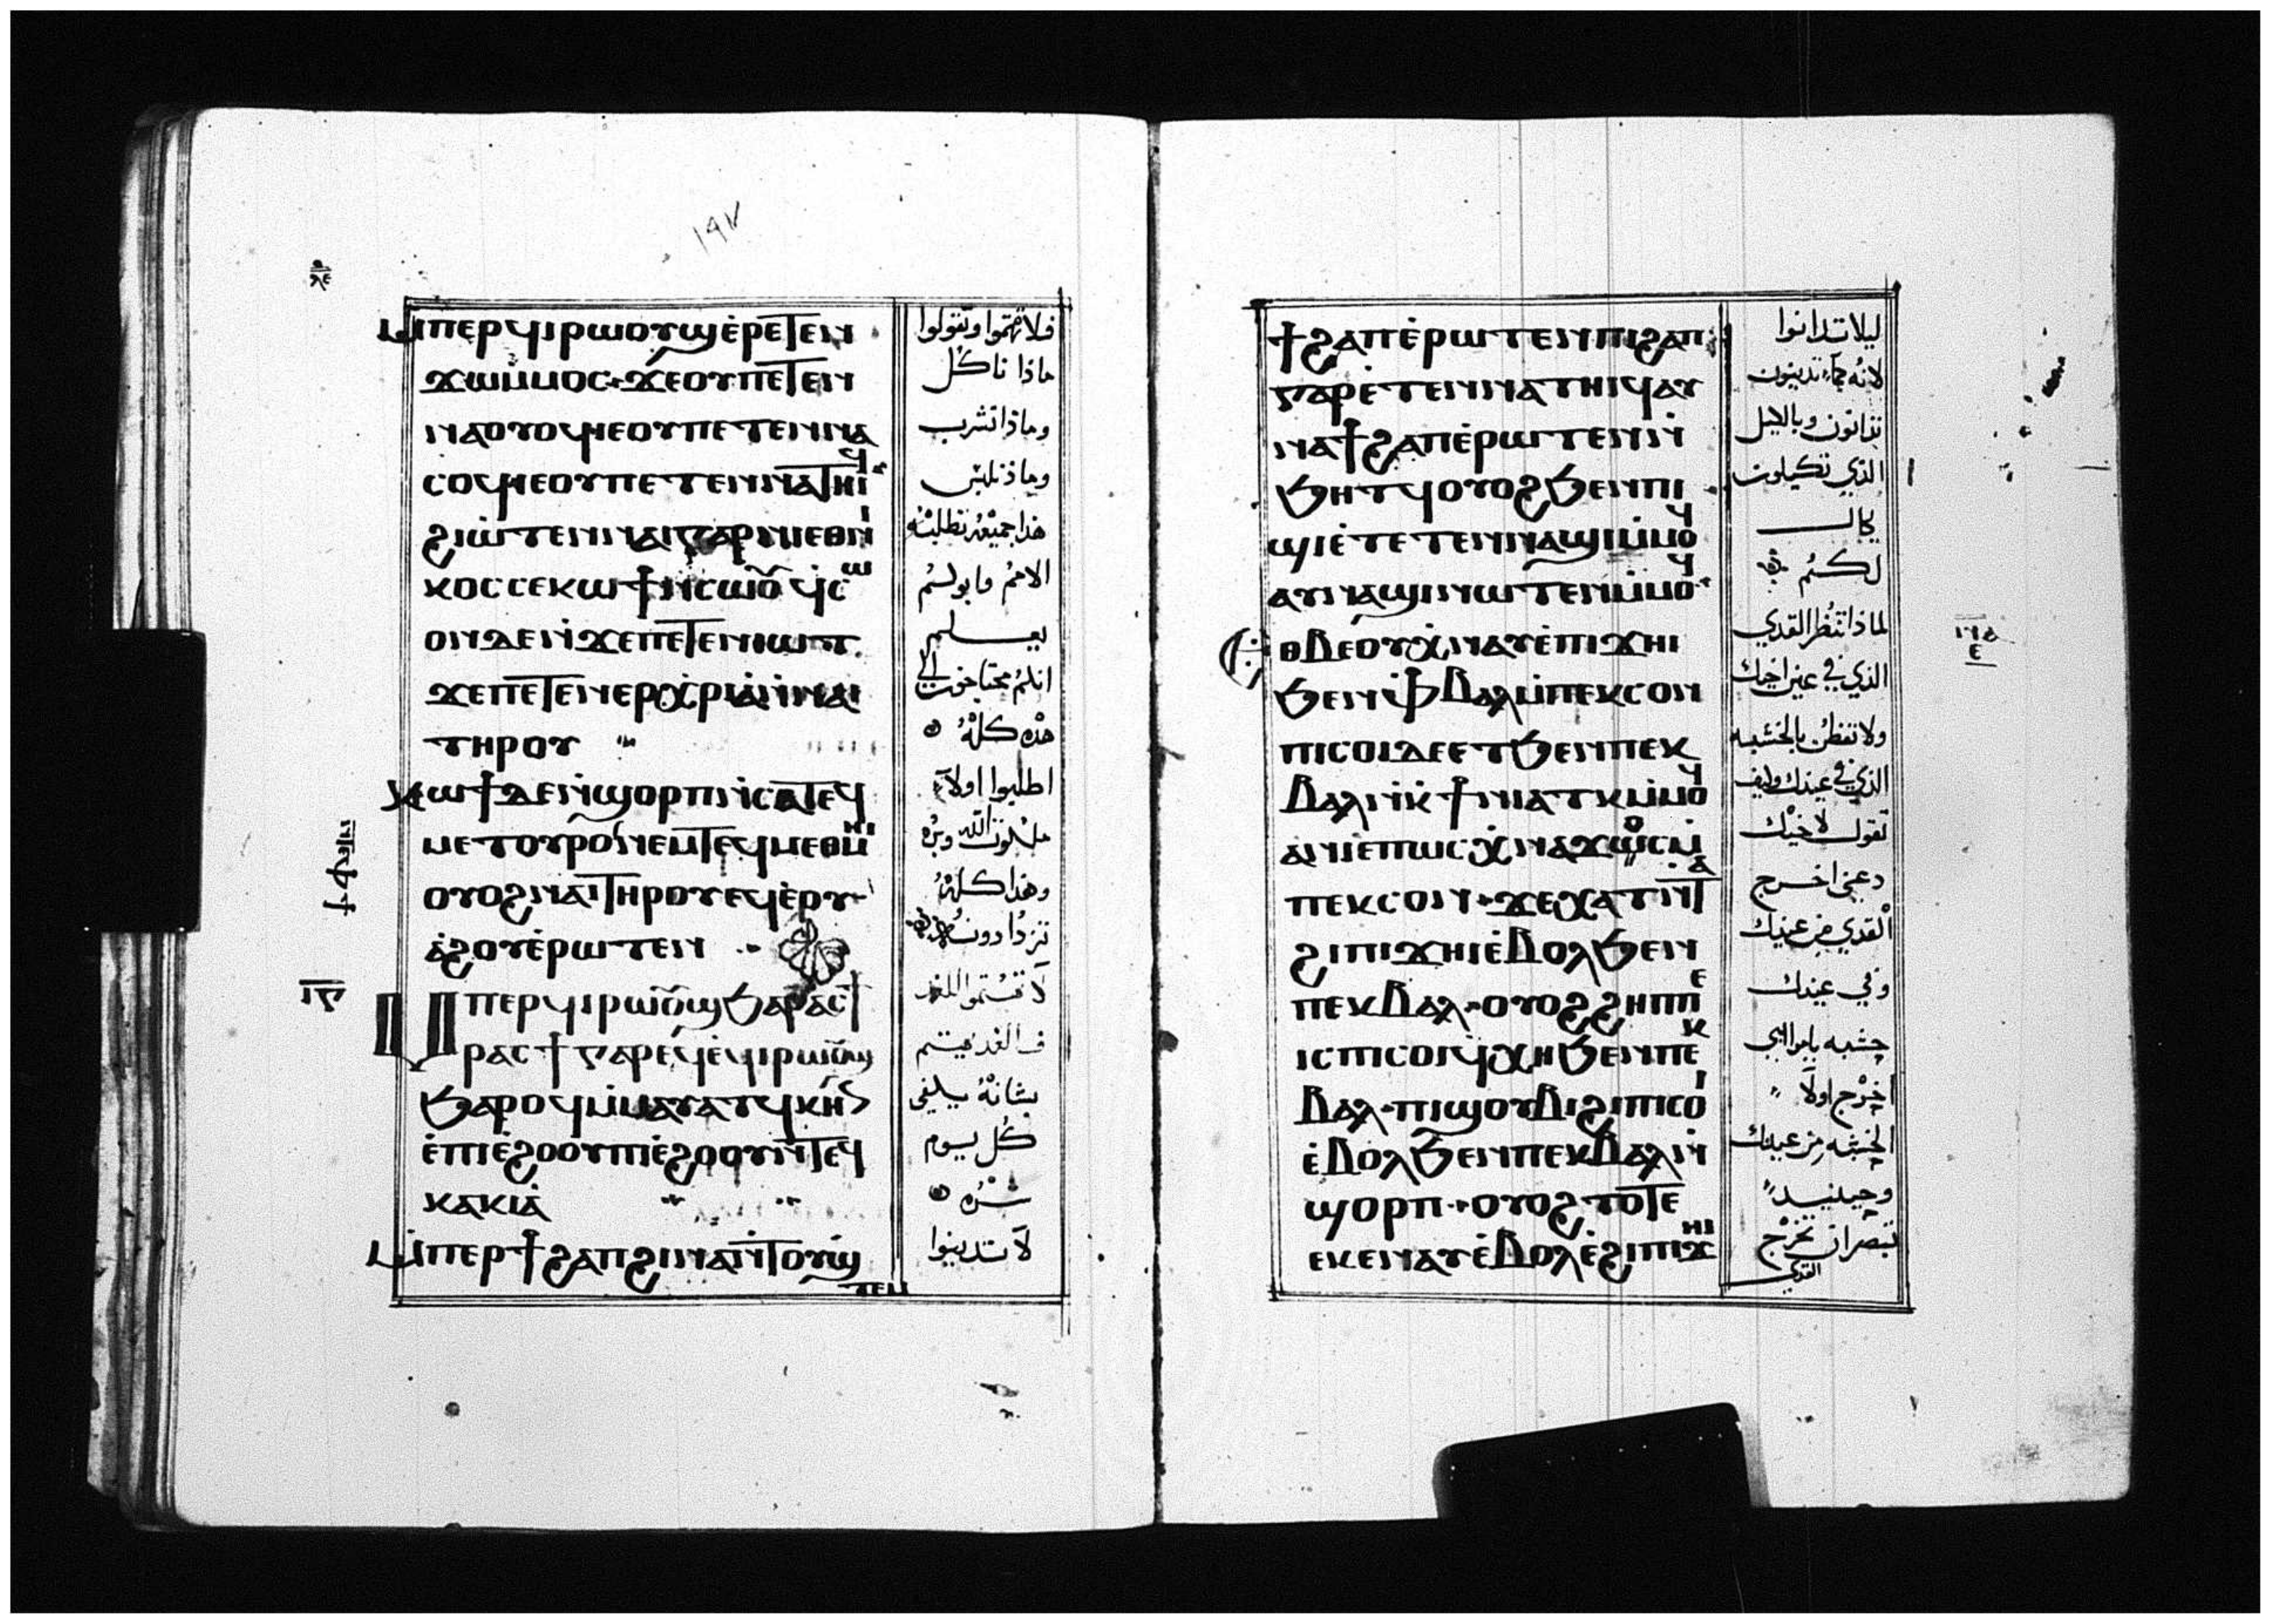 ١٩٧
ⲙ̀ⲡⲉⲣϥⲓⲣⲱⲟⲩϣ ⲉ̀ⲣⲉⲧⲉⲛ
ϫⲱⲙ̀ⲙⲟⲥ ϫⲉ ⲟⲩ ⲡⲉⲧⲉⲛ
ⲛⲁⲟⲩⲟϥ ⲓⲉ ⲟⲩ ⲡⲉⲧⲉⲛⲛⲁ
ⲥⲟϥ ⲓⲉ ⲟⲩ ⲡⲉⲧⲉⲛⲛⲁⲧⲏⲓϥ
ϩⲓⲱ̀ⲧⲉⲛ ⲛⲁⲓ ⲅⲁⲣ ⲛⲓⲉⲑⲛⲓ
ⲕⲟⲥ ⲥⲉⲕⲱϯ ⲛ̀ⲥⲱⲟⲩ ϥ̀ⲥⲱ
ⲟⲩⲛ ⲇⲉ ⲛ̀ϫⲉ ⲡⲉⲧⲉⲛⲓⲱⲧ
ϫⲉ ⲡⲉⲧⲉⲛⲉⲣⲭ̀ⲣⲓⲁ̀ ⲛ̀ⲛⲁⲓ
ⲧⲏⲣⲟⲩ
ⲕⲱϯ ⲇⲉ ⲛ̀ϣⲟⲣⲡ ⲛ̀ⲥⲁ ⲧⲉϥ
ⲙⲉⲧⲟⲩⲣⲟ ⲛⲉⲙ ⲧⲉϥⲙⲉⲑⲙⲏⲓ
ⲟⲩⲟϩ ⲛⲁⲓ ⲧⲏⲣⲟⲩ ⲉⲩⲉ̀ⲟⲩ
ⲁ̀ϩⲟⲩ ⲉ̀ⲣⲱⲧⲉⲛ
ⲙ̀ⲡⲉⲣϥⲓⲣⲱⲟⲩϣ ϧⲁ ⲣⲁⲥϯ
ⲣⲁⲥϯ ⲅⲁⲣ ⲉϥⲉ̀ϥⲓⲣⲱⲟⲩϣ
ϧⲁⲣⲟϥ ⲙ̀ⲙⲁⲩⲁⲧϥ ⲕⲏⲛ
ⲉ̀ⲡⲓⲉ̀ϩⲟⲟⲩ ⲡⲓⲉ̀ϩⲟⲟⲩ ⲛ̀ⲧⲉϥ
ⲕⲁⲕⲓⲁ̀
ⲙ̀ⲡⲉⲣϯϩⲁⲡ ϩⲓⲛⲁ ⲛ̀ⲧⲟⲩϣ̀
ⲧⲉⲙ
فلا تهتموا وتقولوا
ماذا ناكل
وماذا نشرب
وماذ نلبس
هذا جميعه تطلبه
الامم وابوكم
يعلم
انكم محتاجون الى
هذه كله
اطلبوا اولا
ملكوت الله وبره
وهذا كله
تزدادونه
لا تهتموا للغد
فالغد يهتم
بشانه يكفي
كل يوم
شره
لا تدينوا
ϯϩⲁⲡ ⲉ̀ⲣⲱⲧⲉⲛ ⲡⲓϩⲁⲡ
ⲅⲁⲣ ⲉ̀ⲧⲉⲧⲉⲛⲛⲁⲧⲏⲓϥ ⲁⲩ
ⲛⲁϯϩⲁⲡ ⲉ̀ⲣⲱⲧⲉⲛ ⲛ̀
ϧⲏⲧϥ ⲟⲩⲟϩ ϧⲉⲛ ⲡⲓ
ϣⲓ ⲉ̀ⲧⲉⲧⲉⲛⲛⲁϣⲓ ⲙ̀ⲙⲟϥ
ⲁⲩⲛⲁϣⲓ ⲛⲱⲧⲉⲛ ⲙ̀ⲙⲟϥ
ⲉⲑⲃⲉ ⲟⲩ ⲭ̀ⲛⲁⲩ ⲉ̀ⲡⲓϫⲏⲓ
ϧⲉⲛ ⲫ̀ⲃⲁⲗ ⲙ̀ⲡⲉⲕⲥⲟⲛ
ⲡⲓⲥⲟⲓ ⲇⲉ ⲉⲧϧⲉⲛ ⲡⲉⲕ
ⲃⲁⲗ ⲛ̀ⲕ̀ϯⲛⲓⲁⲧⲕ ⲙ̀ⲙⲟϥ
ⲁⲛ ⲓⲉ ⲡⲱⲥ ⲭ̀ⲛⲁϫⲟⲥ ⲙ̀
ⲡⲉⲕⲥⲟⲛ ϫⲉ ⲭⲁⲧ ⲛ̀ⲧⲁ
ϩⲓ ⲡⲓϫⲏⲓ ⲉ̀ⲃⲟⲗ ϧⲉⲛ
ⲡⲉⲕⲃⲁⲗ ⲟⲩⲟϩ ϩⲏⲡⲡⲉ
ⲓⲥ ⲡⲓⲥⲟⲓ ϥ̀ⲭⲏ ϧⲉⲛ ⲡⲉⲕ
ⲃⲁⲗ ⲡⲓϣⲟⲩⲃⲓ ϩⲓ ⲡⲓⲥⲟⲓ
ⲉ̀ⲃⲟⲗ ϧⲉⲛ ⲡⲉⲕⲃⲁⲗ ⲛ̀
ϣⲟⲣⲡ ⲟⲩⲟϩ ⲧⲟⲧⲉ
ⲉⲕⲉⲛⲁⲩ ⲉ̀ⲃⲟⲗ ⲉ̀ϩⲓ ⲡⲓϫⲏⲓ
ليلا تدانوا
لانه كما تدينون
تدانون وبالكيل
الذي تكيلون
يكال
لكم
لماذا تنظر القدي
الذي في عين اخيك
ولا تفطن بالخشبه
الذي في عينك وكيف
تقول لاخيك
دعني اخرج
القدي من عينك
وفي عينك
خشبه يامرايي
اخرج اولا
الخشبه من عينك
وحينيد
تبصر ان تخرج
القدي